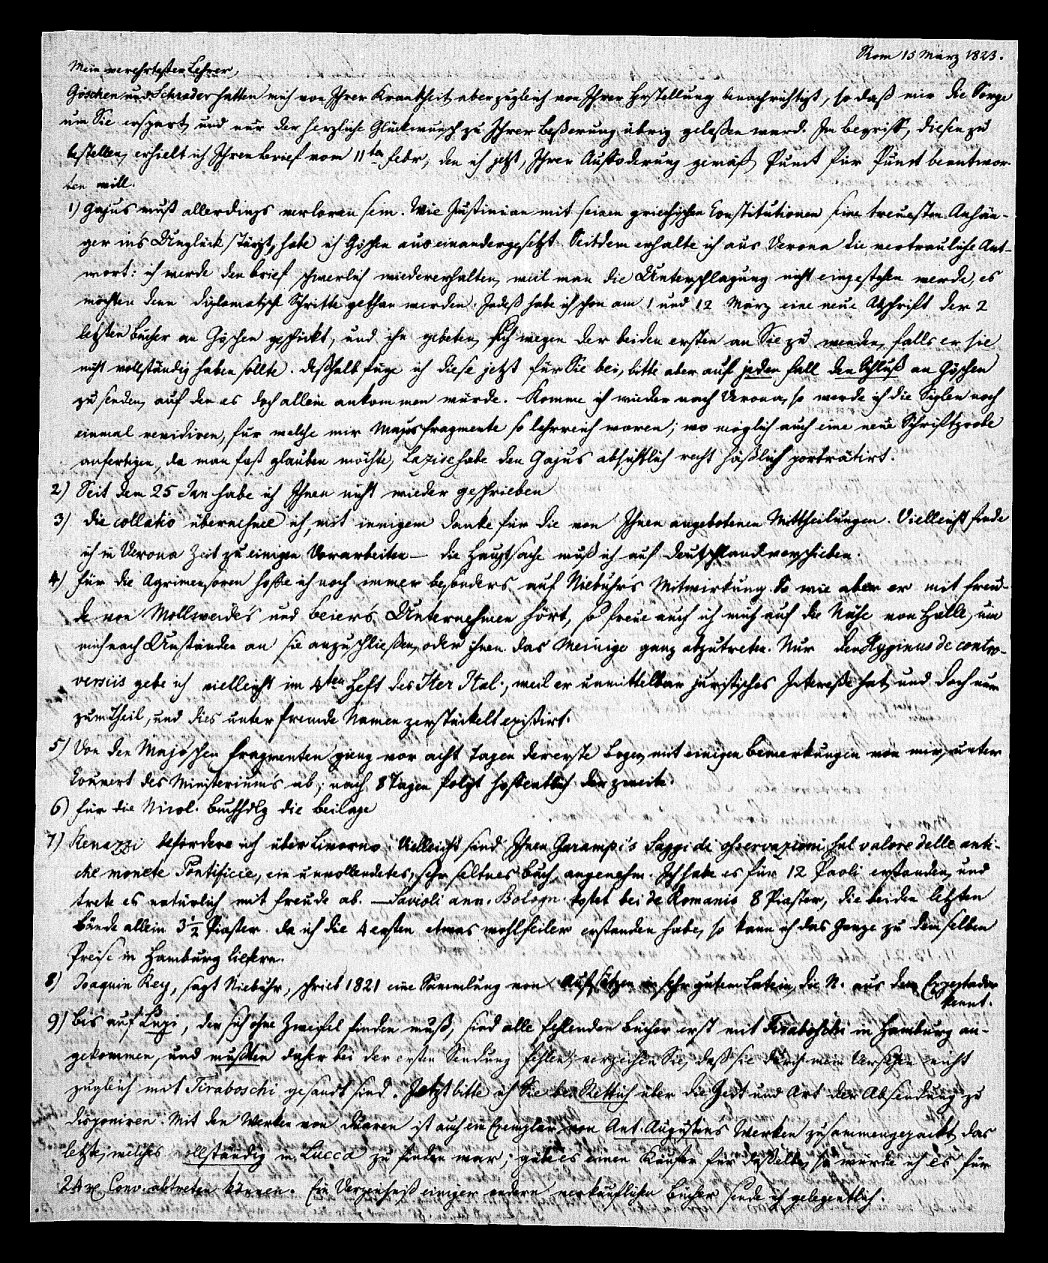 Rom 13 März 1823.
Mein verehrtester Lehrer,
Göschen und Schrader hatten mich von Ihrer Krankheit aber zugleich von Ihrer Herstellung benachrichtigt, so daß mir die Sorge
um Sie erspart, und nur der herzliche Glückwunsch zu Ihrer Beßerung übrig gelaßen ward. Im Begriff, diesen zu
bestellen, erhielt ich Ihren Brief vom 11ten Febr, den ich jetzt, Ihrer Aufforderung gemäß, Punct für Punct beantwor-
ten will.
1) Gajus muß allerdings verloren sein. Wie Justinian mit seinen griechischen Constitutionen seine treuesten Anhän-
ger ins Unglück stürzt, habe ich Göschen auseinandergesetzt. Seitdem erhalte ich aus Verona die vertrauliche Ant-
wort: ich werde den Brief schwerlich wiedererhalten, weil man die Unterschlagung nicht eingestehen werde, es
möchten denn diplomatische Schritte gethan werden. Indeß habe ich schon am 1 und 12 März eine neue Abschrift der 2
letzten Bücher an Göschen geschickt, und ihn gebeten, sich wegen der beiden ersten an Sie zu wenden, falls er sie
nicht vollständig haben sollte. Deßhalb füge ich diese jetzt für Sie bei, bitte aber auf jeden Fall den Schluß an Göschen
zu senden, auf den es doch allein ankommen würde. Komme ich wieder nach Verona, so werde ich die Siglen noch
einmal revidiren, für welche mir Majus Fragmente so lehrreich waren; wo möglich auch eine neue Schriftprobe
anfertigen, da man fast glauben möchte, Lazise habe den Gajus absichtlich recht häßlich porträtirt.
2) Seit dem 25 Jan habe ich Ihnen nicht wieder geschrieben
3) Die collatio übernehme ich, mit innigem Danke für die von Ihnen angebotenen Mittheilungen. Vielleicht finde
ich in Verona Zeit zu einigen Vorarbeiten — die Hauptsache muß ich auf Deutschland verschieben.
4) Für die Agrimensoren hoffe ich noch immer besonders auf Niebuhrs Mitwirkung. So wie aber er mit Freu-
de von Mollweide's und Beiers Unternehmen hört, so freue auch ich mich auf die Nähe von Halle, um
mich nach Umständen an sie anzuschließen, oder ihnen das Meinige ganz abzutreten. Nur den Hyginus de contro-
versiis gebe ich vielleicht im 4ten Heft des Iter Ital., weil er unmittelbar juristisches Intereße hat, und doch nur
zum Theil, und dies unter fremde Namen zerstückelt existirt.
5) Von den Majoschen Fragmenten ging vor acht Tagen der erste Bogen mit einigen Bemerkungen von mir, unter
Couvert des Ministeriums ab; nach 8 Tagen folgt hoffentlich der zweite.
6) Für die Nicol. Buchhdlg die Beilage
7) Renazzi befördere ich über Livorno. Vielleicht sind Ihnen Garampi's Saggi di osservazioni sul valore delle anti-
che monete Pontificie, ein unvollendetes, sehr seltnes Buch, angenehm. Ich habe es für 12 Paoli erstanden, und
trete es natürlich mit Freude ab. — Savioli ann. Bologn. kostet bei de Romanis 8 Piaster, die beiden letzten
Bände allein 3 1/2 Piaster. Da ich die 4 ersten etwas wohlfeiler erstanden habe, so kann ich das Ganze zu demselben
Preise in Hamburg liefern.
8) Joaquin Rey, sagt Niebuhr, schrieb 1821 eine Sammlung von Aufsätzen in sehr gutem Latein, die N. aus dem Espectador
kennt.
9) Bis auf Luzi, der sich ohne Zweifel finden muß, sind alle fehlenden Bücher erst mit Tiraboschi in Hamburg an-
gekommen, und mußten daher bei der ersten Sendung fehlen; verzeihen Sie, daß sie durch mein Versehen nicht
zugleich mit Tiraboschi gesandt sind. Jetzt bitte ich Sie bei Rettich über die Zeit und Art der Absendung zu
disponiren. Mit den Werken von Duaren ist auch ein Exemplar von Ant. Augustins Werken zusammengepackt, das
letzte, welches vollständig in Lucca zu finden war; gäbe es einen Käufer für dasselbe, so würde ich es für
24 Conv. abtreten können. Ein Verzeichniß einiger andern verkäuflichen Bücher sende ich gelegentlich.